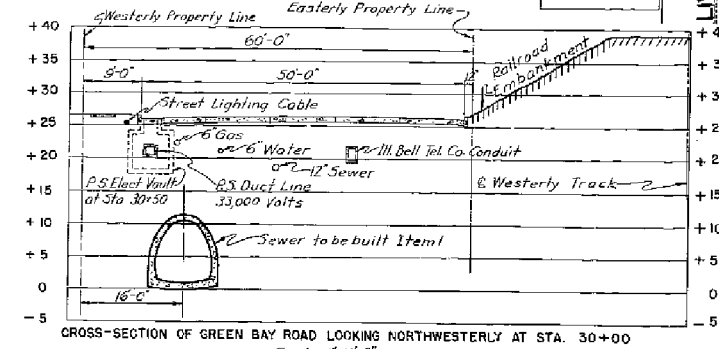 Westerly Property Line
Easterly Property Line
60'-0"
9'-0"
50'-0"
12"
Railroad
Embankment
Street Lighting Cable
6" Gas
6" Water
Ill. Bell Tel. Co. Conduit
12" Sewer
P.S. Elect Vault
at Sta 30+50
P.S. Duct Line
33,000 Volts
℄ Westerly Track
Sewer to be built Item 1
16'-0"
+40
+35
+30
+25
+20
+15
+10
+5
0
-5
+15
+10
+5
0
-5
CROSS-SECTION OF GREEN BAY ROAD LOOKING NORTHWESTERLY AT STA. 30+00